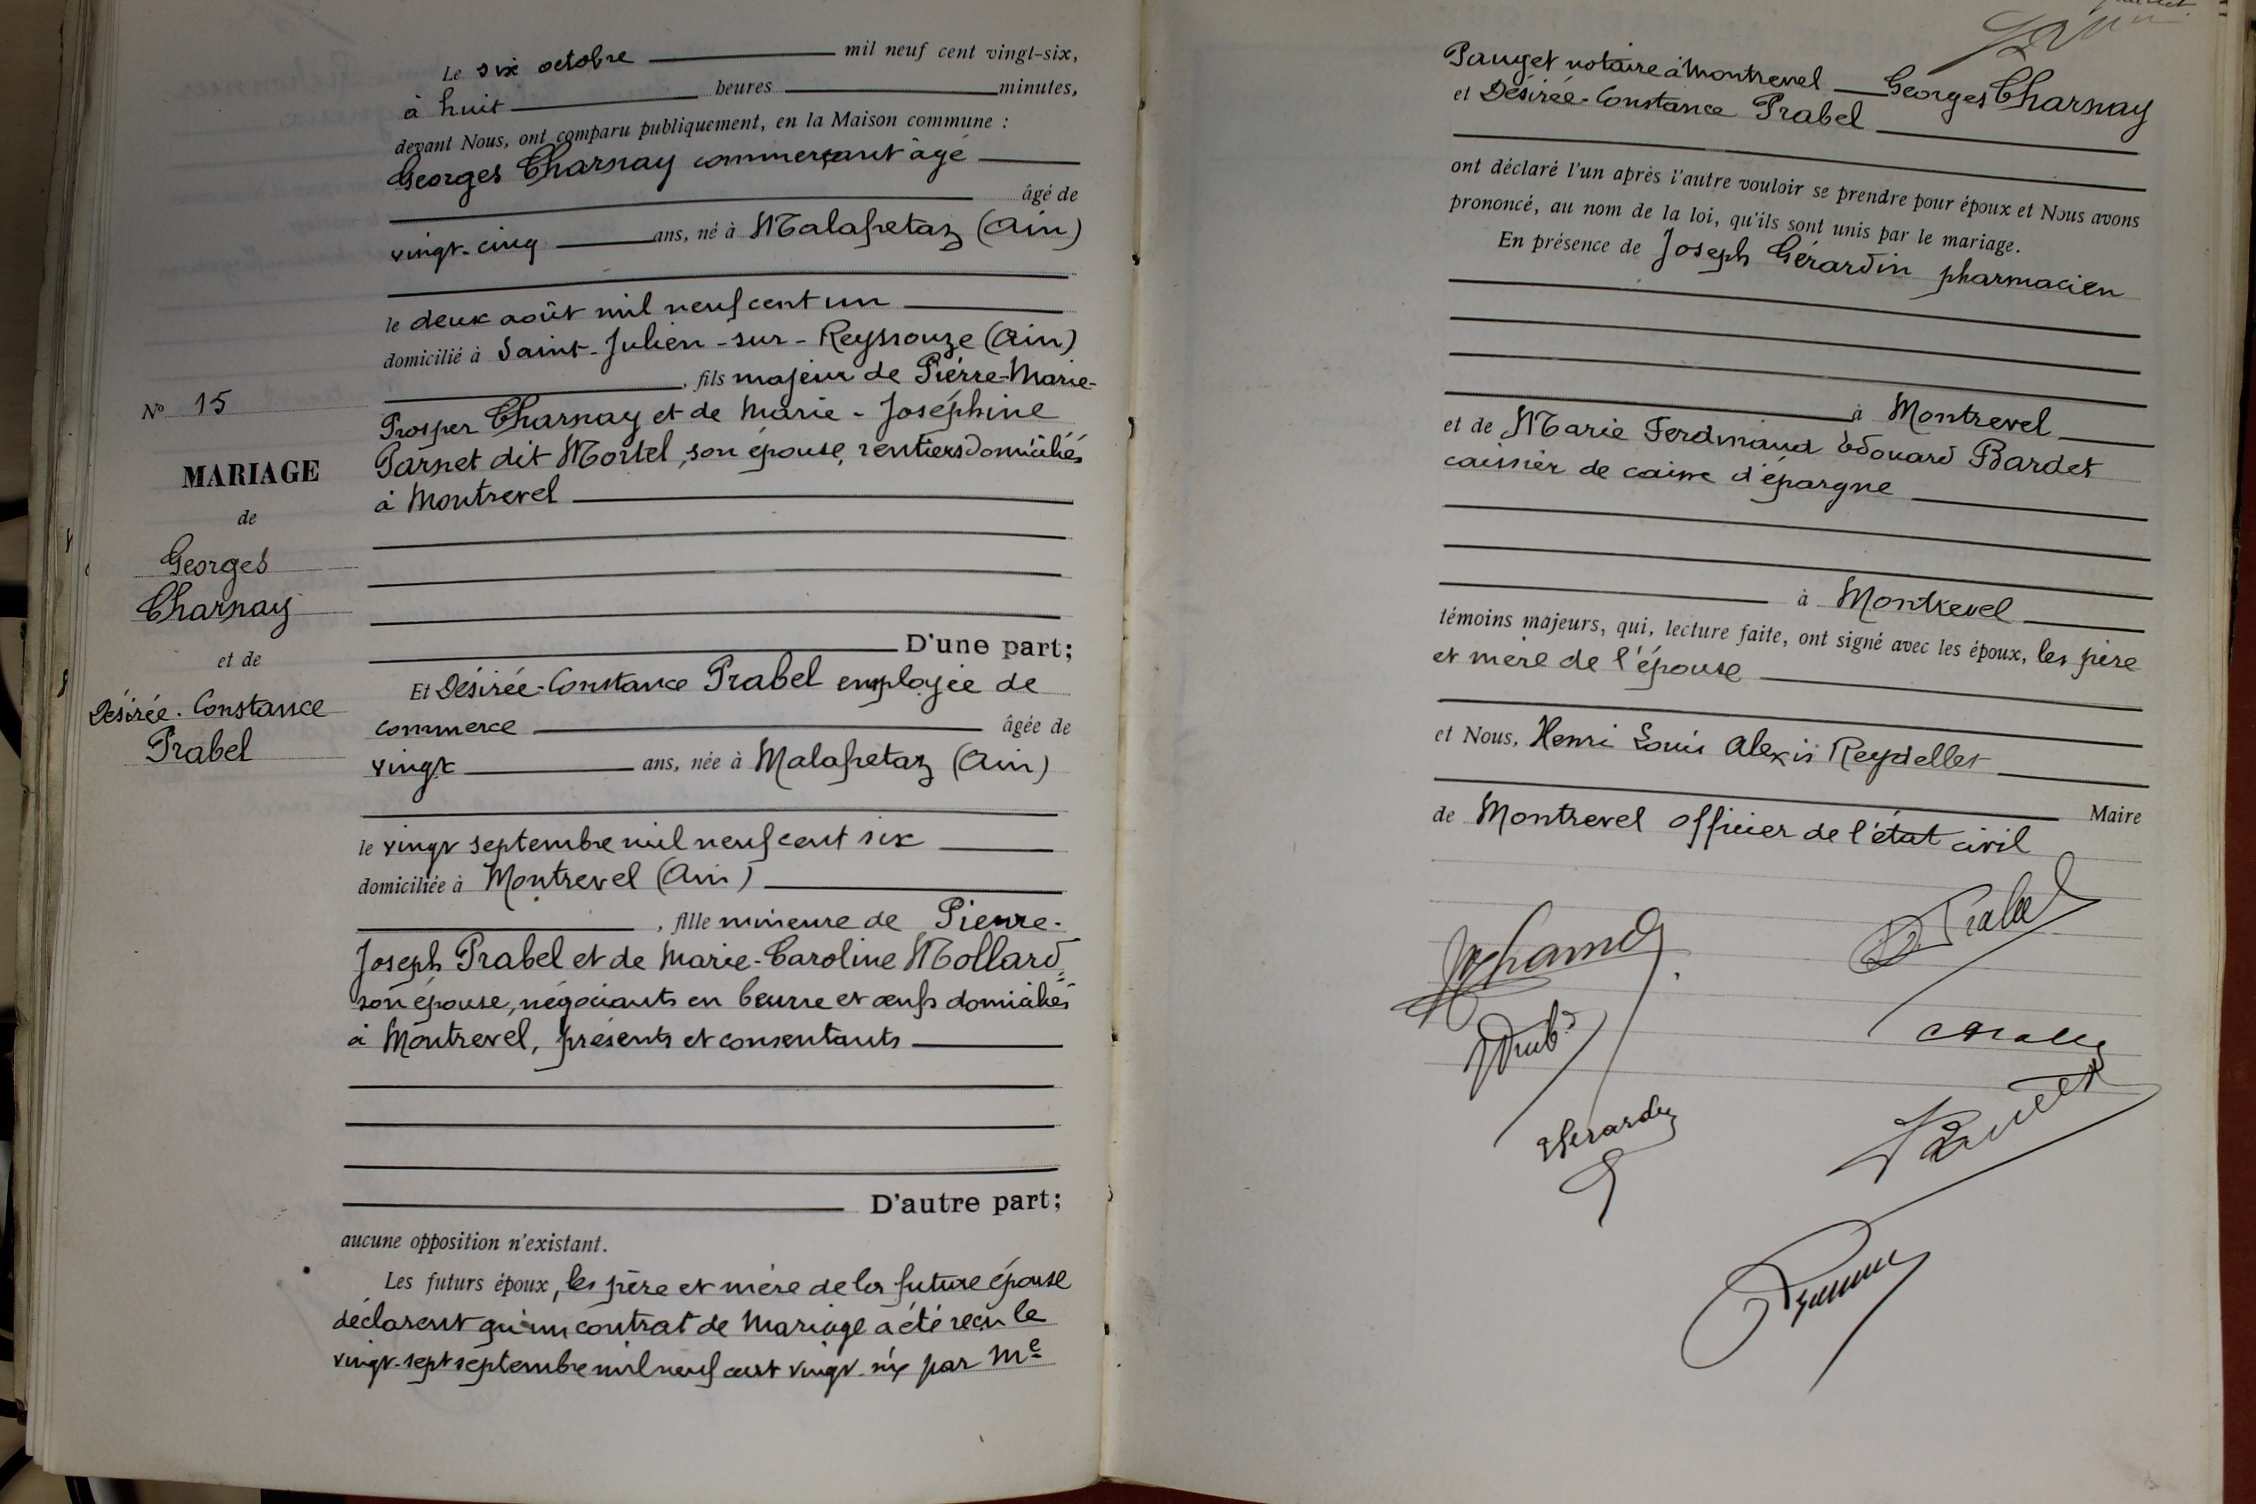 Le six octobre mil neuf cent vingt-six,
à huit heures minutes,
devant Nous, ont comparu publiquement, en la Maison commune :
Georges Charnay commerçant âgé
âgé de
vingt-cinq ans, né à Malafretaz (Ain)
le deux août mil neuf cent un
domicilié à Saint-Julien-sur-Reyssouze (Ain)
, fils majeur de Pierre-Marie-
Prosper Charnay et de Marie-Joséphine
Parnet dit Mortel, son épouse, rentiers domiciliés
à Montrevel
D'une part;
Et Désirée-Constance Prabel employée de
commerce âgée de
vingt ans, née à Malafretaz (Ain)
le vingt septembre mil neuf cent six
domiciliée à Montrevel (Ain)
, fille mineure de Pierre-
Joseph Prabel et de Marie-Caroline Mollard,
son épouse, négociants en beurre et œufs domiciliés
à Montrevel, présents et consentants
D'autre part;
aucune opposition n'existant.
Les futurs époux, les père et mère de la future épouse
déclarent qu'un contrat de mariage a été reçu le
vingt-sept septembre mil neuf cent vingt-six par Me
No 15
MARIAGE
de
Georges
Charnay
et de
Désirée-Constance
Prabel
Pauget notaire à Montrevel Georges Charnay
et Désirée-Constance Prabel
ont déclaré l'un après l'autre vouloir se prendre pour époux et Nous avons
prononcé, au nom de la loi, qu'ils sont unis par le mariage.
En présence de Joseph Gérardin pharmacien
à Montrevel
et de Marie Ferdinand Edouard Bardet
caissier de caisse d'épargne
à Montrevel
témoins majeurs, qui, lecture faite, ont signé avec les époux, les père
et mère de l'épouse
et Nous, Henri Louis Alexis Reydellet
Maire
de Montrevel officier de l'état civil
D. Prabel
Gerardin